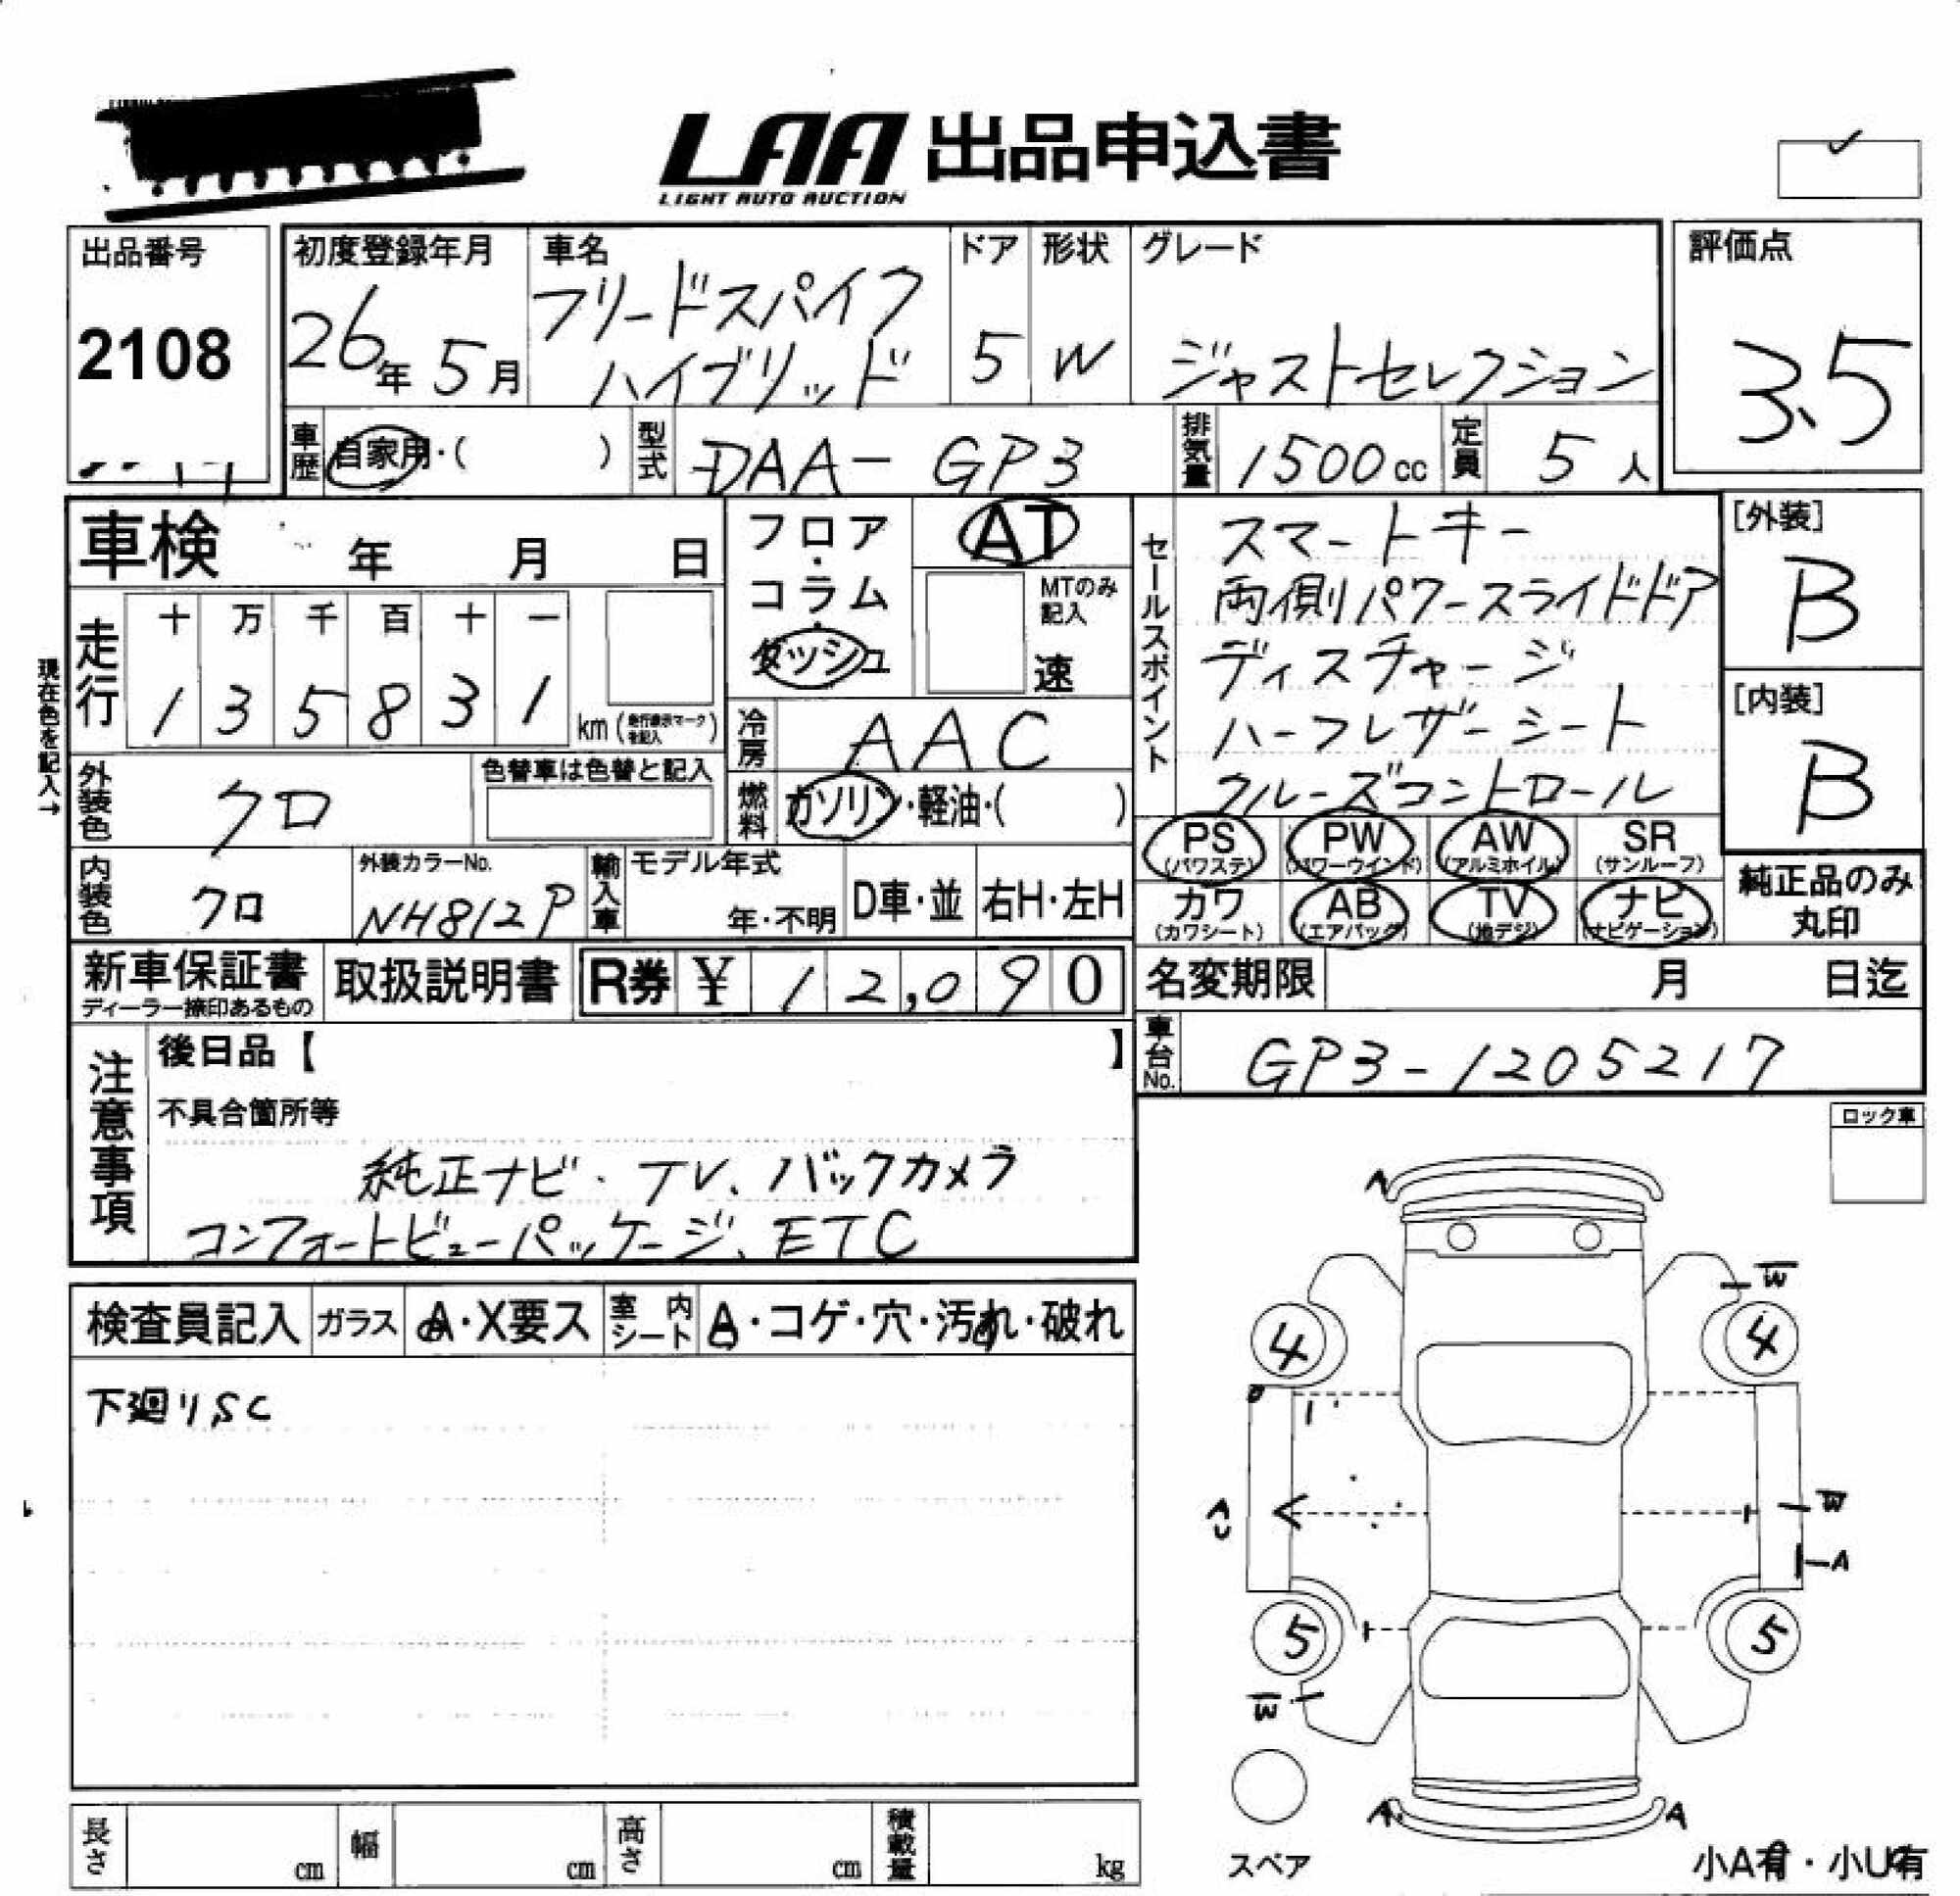 LAA 出品申込書
LIGHT AUTO AUCTION
出品番号
2108
初度登録年月
26年 5月
車名
フリードスパイク
ハイブリッド
ドア
5
形状
W
グレード
ジャストセレクション
評価点
3.5
車歴
自家用・( )
型式
DAA-GP3
排気量
1500cc
定員
5人
車検 年 月 日
フロア・コラム・ダッシュ
AT
MTのみ記入
速
セールスポイント
スマートキー
両側パワースライドドア
ディスチャージ
ハーフレザーシート
クルーズコントロール
[外装]
B
[内装]
B
現在色を記入→
走行
十 万 千 百 十 一
1 3 5 8 3 1
km (走行表示マークを記入)
冷房
AAC
外装色
クロ
色替車は色替と記入
燃料
ガソリン・軽油・( )
PS (パワステ)
PW (パワーウインド)
AW (アルミホイル)
SR (サンルーフ)
カワ (カワシート)
AB (エアバック)
TV (地デジ)
ナビ (ナビゲーション)
純正品のみ丸印
内装色
クロ
外装カラーNo.
NH812P
輸入車
モデル年式
年・不明
D車・並
右H・左H
新車保証書
ディーラー捺印あるもの
取扱説明書
R券 ¥ 12,090
名変期限 月 日迄
車台No.
GP3-1205217
注意事項
後日品【 】
不具合箇所等
純正ナビ・TV、バックカメラ
コンフォートビューパッケージ、ETC
ロック車
検査員記入
ガラス
A・X要ス
室内シート
A・コゲ・穴・汚れ・破れ
下廻りSC
A
W
4
4
W
A
U
A
5
5
W
A
A
スペア
小A有・小U有
長さ cm
幅 cm
高さ cm
積載量 kg